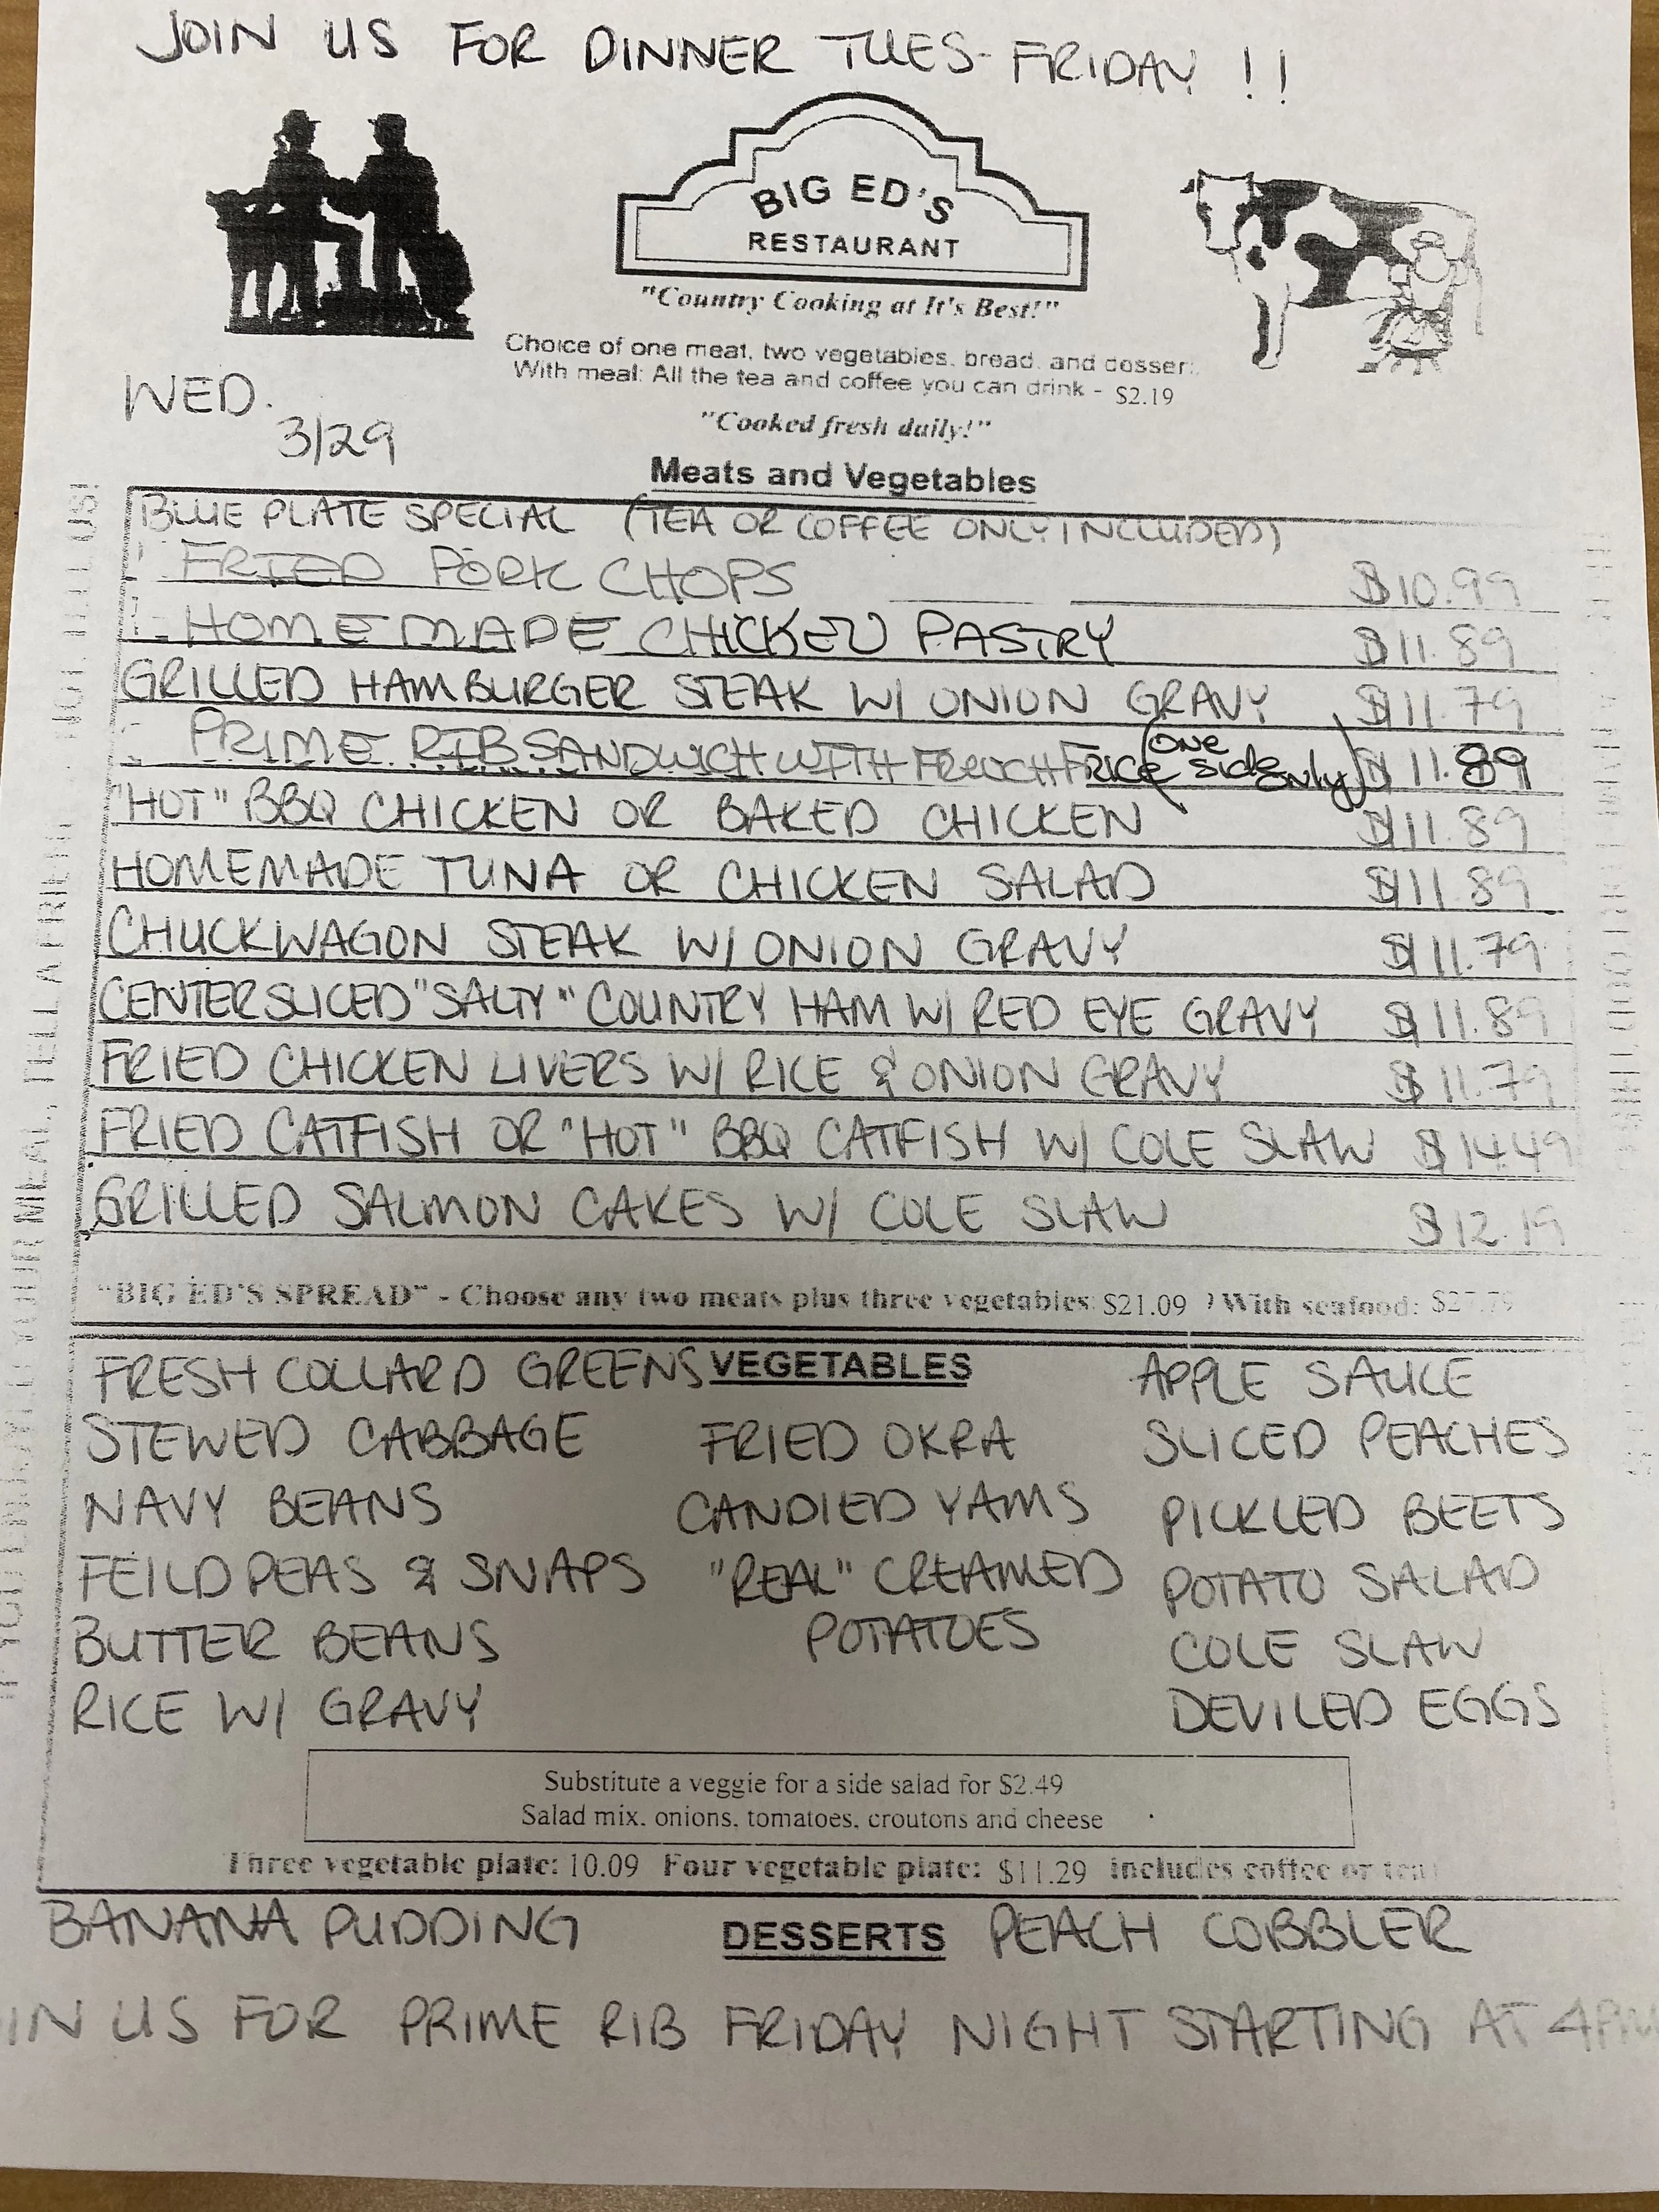 JOIN US FOR DINNER TUES-FRIDAY !!
BIG ED'S
RESTAURANT
"Country Cooking at It's Best!"
Choice of one meat, two vegetables, bread, and dessert.
With meal: All the tea and coffee you can drink - $2.19
"Cooked fresh daily!"
WED.
3/29
Meats and Vegetables
BLUE PLATE SPECIAL (TEA OR COFFEE ONLY INCLUDED)
FRIED PORK CHOPS $10.99
HOMEMADE CHICKEN PASTRY $11.89
GRILLED HAMBURGER STEAK W/ ONION GRAVY $11.79
PRIME RIB SANDWICH WITH FRENCH (one side only) $11.89
"HOT" BBQ CHICKEN OR BAKED CHICKEN $11.89
HOMEMADE TUNA OR CHICKEN SALAD $11.89
CHUCKWAGON STEAK W/ ONION GRAVY $11.79
CENTER SLICED "SALTY" COUNTRY HAM W/ RED EYE GRAVY $11.89
FRIED CHICKEN LIVERS W/ RICE & ONION GRAVY $11.79
FRIED CATFISH OR "HOT" BBQ CATFISH W/ COLE SLAW $14.49
GRILLED SALMON CAKES W/ COLE SLAW $12.19
"BIG ED'S SPREAD" - Choose any two meats plus three vegetables: $21.09 With seafood:
VEGETABLES
FRESH COLLARD GREENS
STEWED CABBAGE
NAVY BEANS
FEILD PEAS & SNAPS
BUTTER BEANS
RICE W/ GRAVY
FRIED OKRA
CANDIED YAMS
"REAL" CREAMED
POTATOES
APPLE SAUCE
SLICED PEACHES
PICKLED BEETS
POTATO SALAD
COLE SLAW
DEVILED EGGS
Substitute a veggie for a side salad for $2.49
Salad mix, onions, tomatoes, croutons and cheese
Three vegetable plate: 10.09 Four vegetable plate: $11.29 includes coffee or tea
BANANA PUDDING DESSERTS PEACH COBBLER
IN US FOR PRIME RIB FRIDAY NIGHT STARTING AT 4PM
YOUR MEAL, TELL A FRIEND NOT, TELL US!